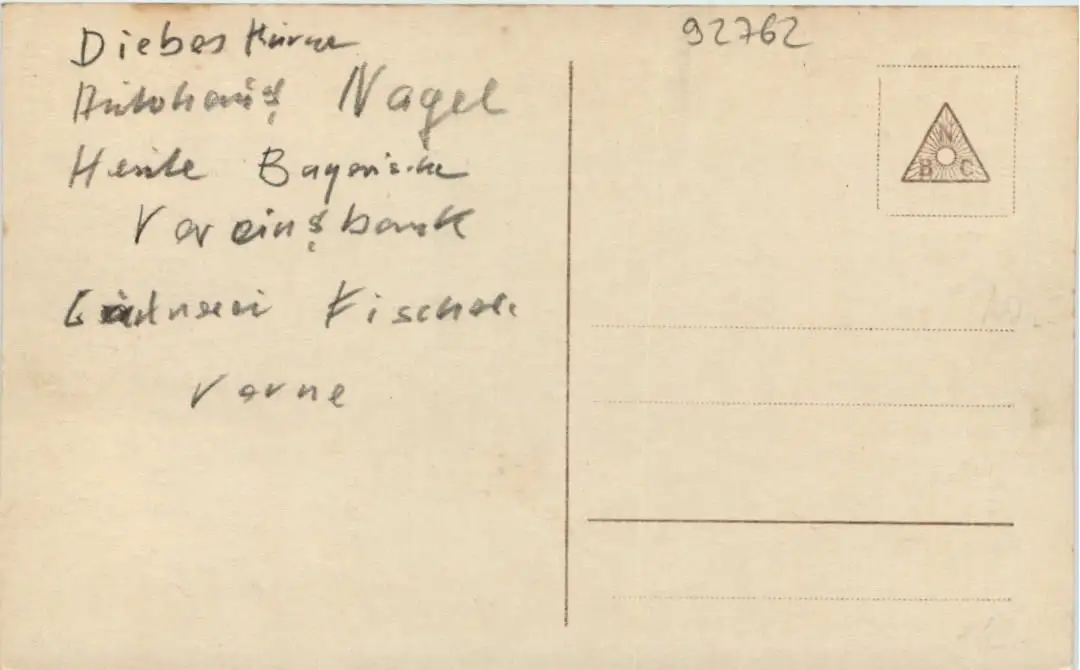 92762
Diebes
Autohaus Nagel
Heute Bayerische
Vereinsbank
Gärtnerei Fischer
vorne
N
B C